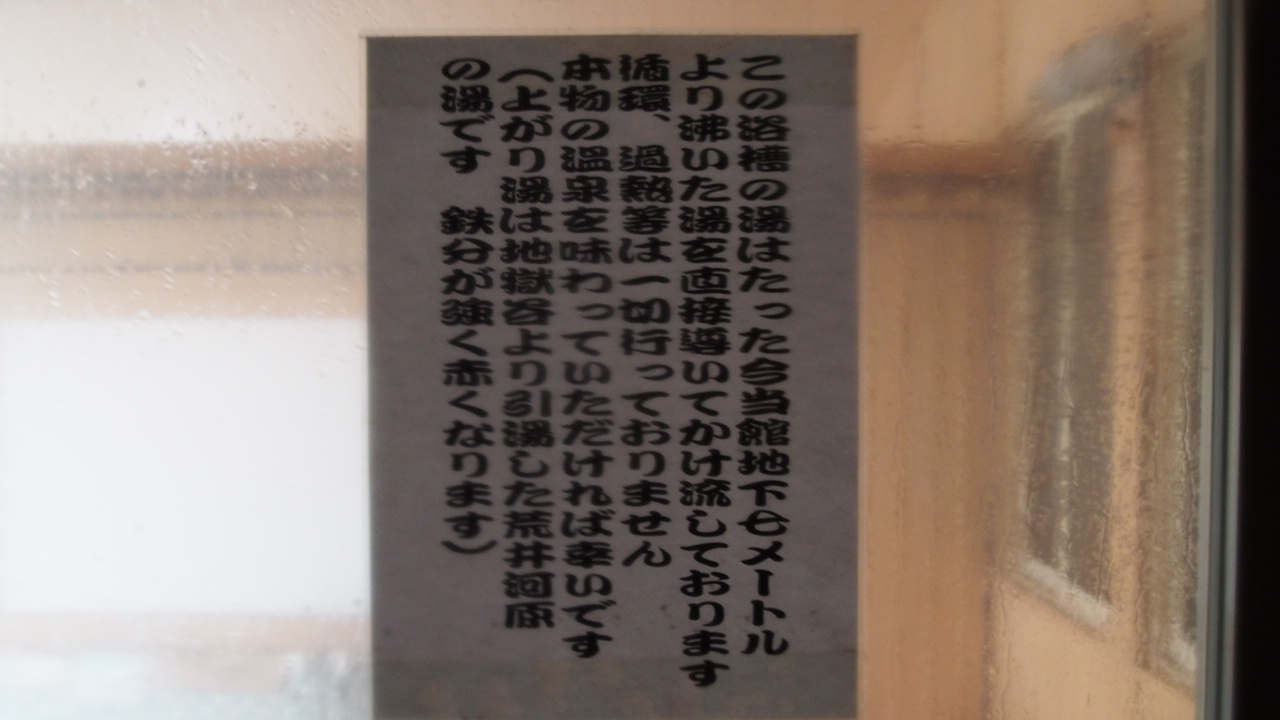 この浴槽の湯はたった今当館地下七メートル
より沸いた湯を直接導いてかけ流しております
循環、過熱等は一切行っておりません
本物の温泉を味わっていただければ幸いです
（上がり湯は地獄谷より引湯した荒井河原
の湯です　鉄分が強く赤くなります）